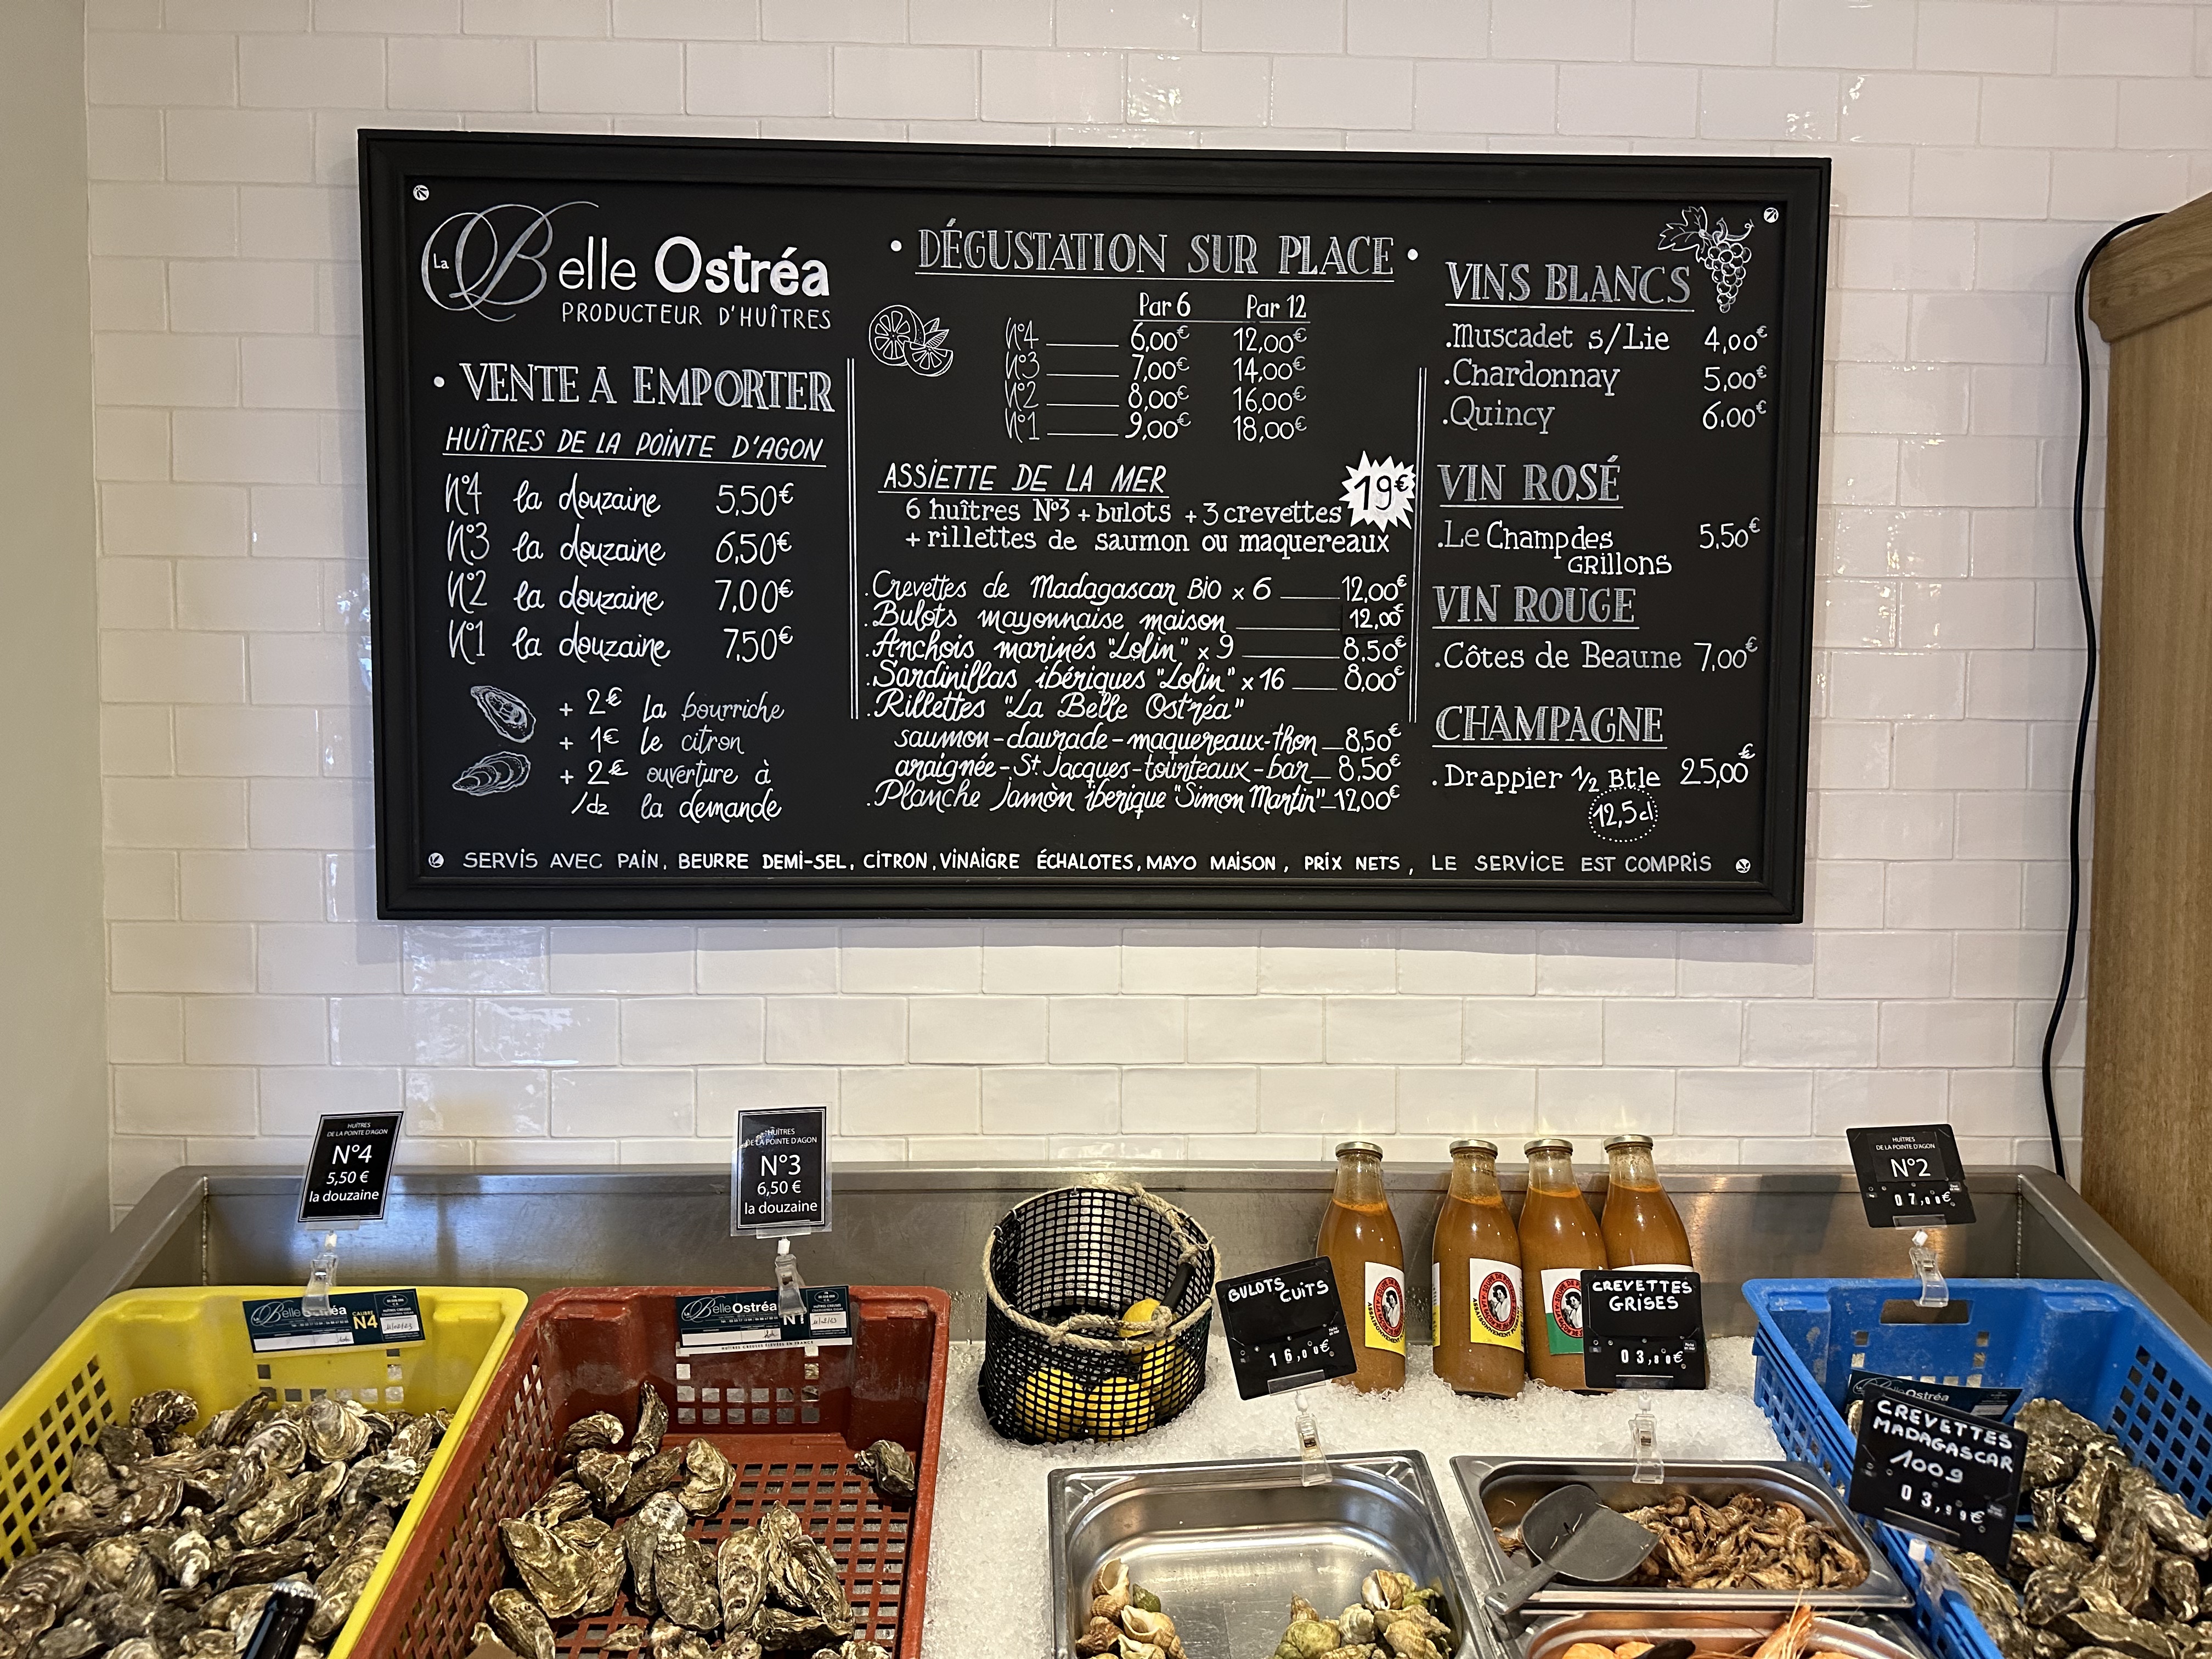 La Belle Ostréa
PRODUCTEUR D'HUÎTRES
• VENTE A EMPORTER
HUÎTRES DE LA POINTE D'AGON
N°4 la douzaine 5,50€
N°3 la douzaine 6,50€
N°2 la douzaine 7,00€
N°1 la douzaine 7,50€
+ 2€ la bourriche
+ 1€ le citron
+ 2€ ouverture à
/dz la demande
• DÉGUSTATION SUR PLACE •
Par 6 Par 12
N°4 6,00€ 12,00€
N°3 7,00€ 14,00€
N°2 8,00€ 16,00€
N°1 9,00€ 18,00€
ASSIETTE DE LA MER 19€
6 huîtres N°3 + bulots + 3 crevettes
+ rillettes de saumon ou maquereaux
.Crevettes de Madagascar BIO x 6 12,00€
.Bulots mayonnaise maison 12,00€
.Anchois marinés "Lolin" x 9 8,50€
.Sardinillas ibériques "Lolin" x 16 8,00€
.Rillettes "La Belle Ostréa"
saumon-daurade-maquereaux-thon 8,50€
araignée-St Jacques-tourteaux-bar 8,50€
.Planche Jamòn iberique "Simon Martin" 12,00€
VINS BLANCS
.Muscadet s/Lie 4,00€
.Chardonnay 5,00€
.Quincy 6,00€
VIN ROSÉ
.Le Champ des 5,50€
GRILLONS
VIN ROUGE
.Côtes de Beaune 7,00€
CHAMPAGNE
.Drappier 1/2 Btle 25,00€
12,5cl
SERVIS AVEC PAIN, BEURRE DEMI-SEL, CITRON, VINAIGRE ÉCHALOTES, MAYO MAISON, PRIX NETS, LE SERVICE EST COMPRIS
HUÎTRES
DE LA POINTE D'AGON
N°4
5,50 €
la douzaine
HUÎTRES
DE LA POINTE D'AGON
N°3
6,50 €
la douzaine
HUÎTRES
DE LA POINTE D'AGON
N°2
07,00€
Belle Ostréa
CALIBRE
N4
Belle Ostréa
N1
BULOTS
CUITS
16,00€
CREVETTES
GRISES
Ostréa
CREVETTES
MADAGASCAR
100g
03,99€